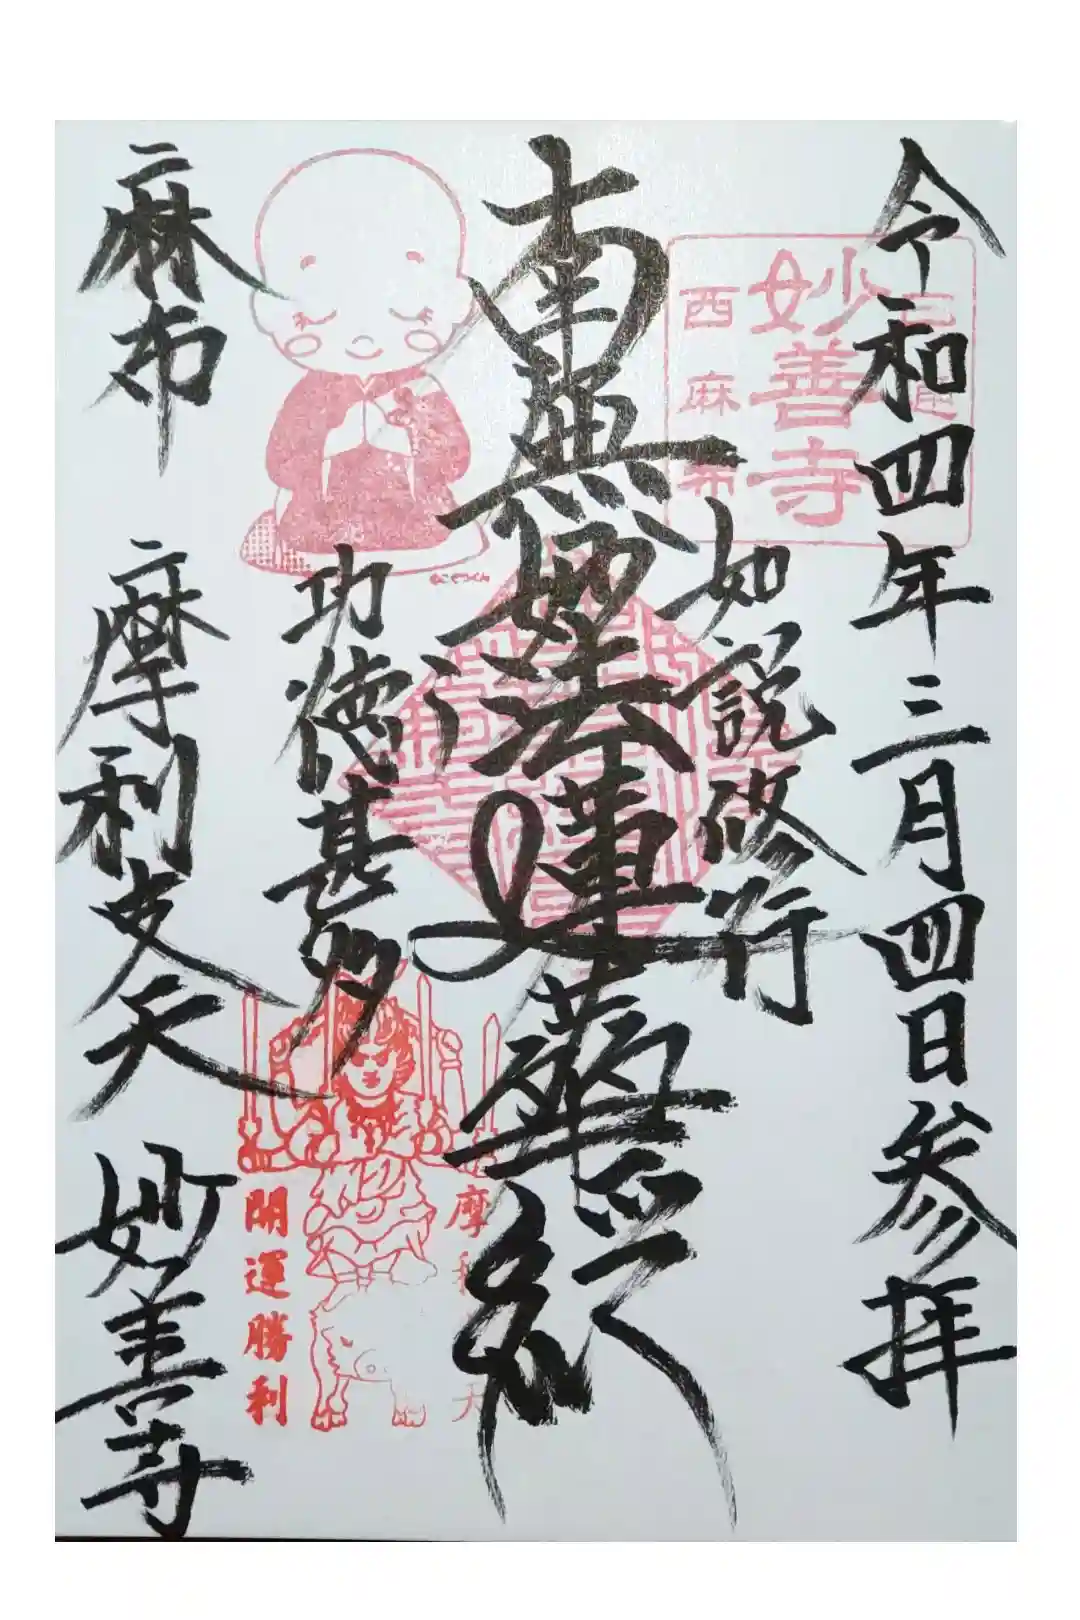 令和四年三月四日参拝
妙善寺
西麻布
如説修行
南無妙法蓮華経
功徳甚多
麻布
摩利支天
妙善寺
開運勝利